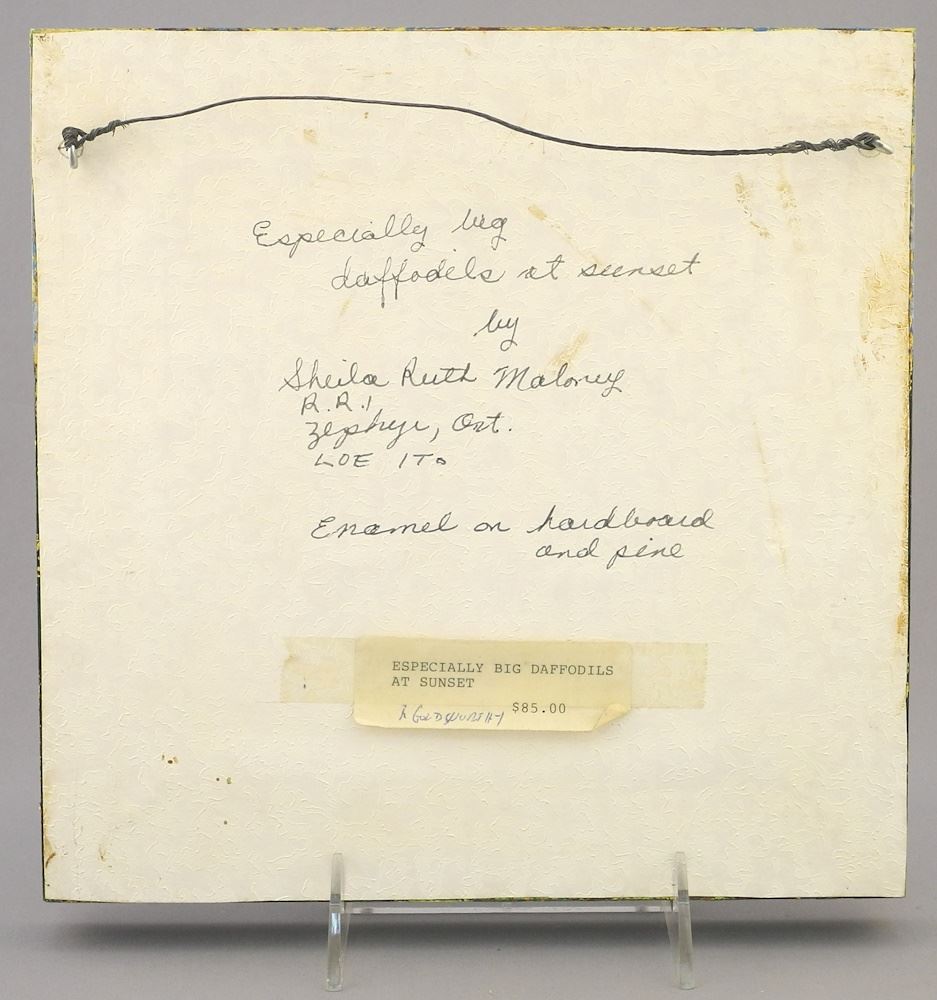 Especially big
daffodils at sunset
by
Sheila Ruth Maloney
R.R.1
Zephyr, Ont.
L0E 1T0
Enamel on hardboard
and pine
ESPECIALLY BIG DAFFODILS
AT SUNSET
$85.00